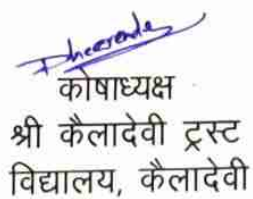 Dheerendra
कोषाध्यक्ष
श्री कैलादेवी ट्रस्ट
विद्यालय, कैलादेवी